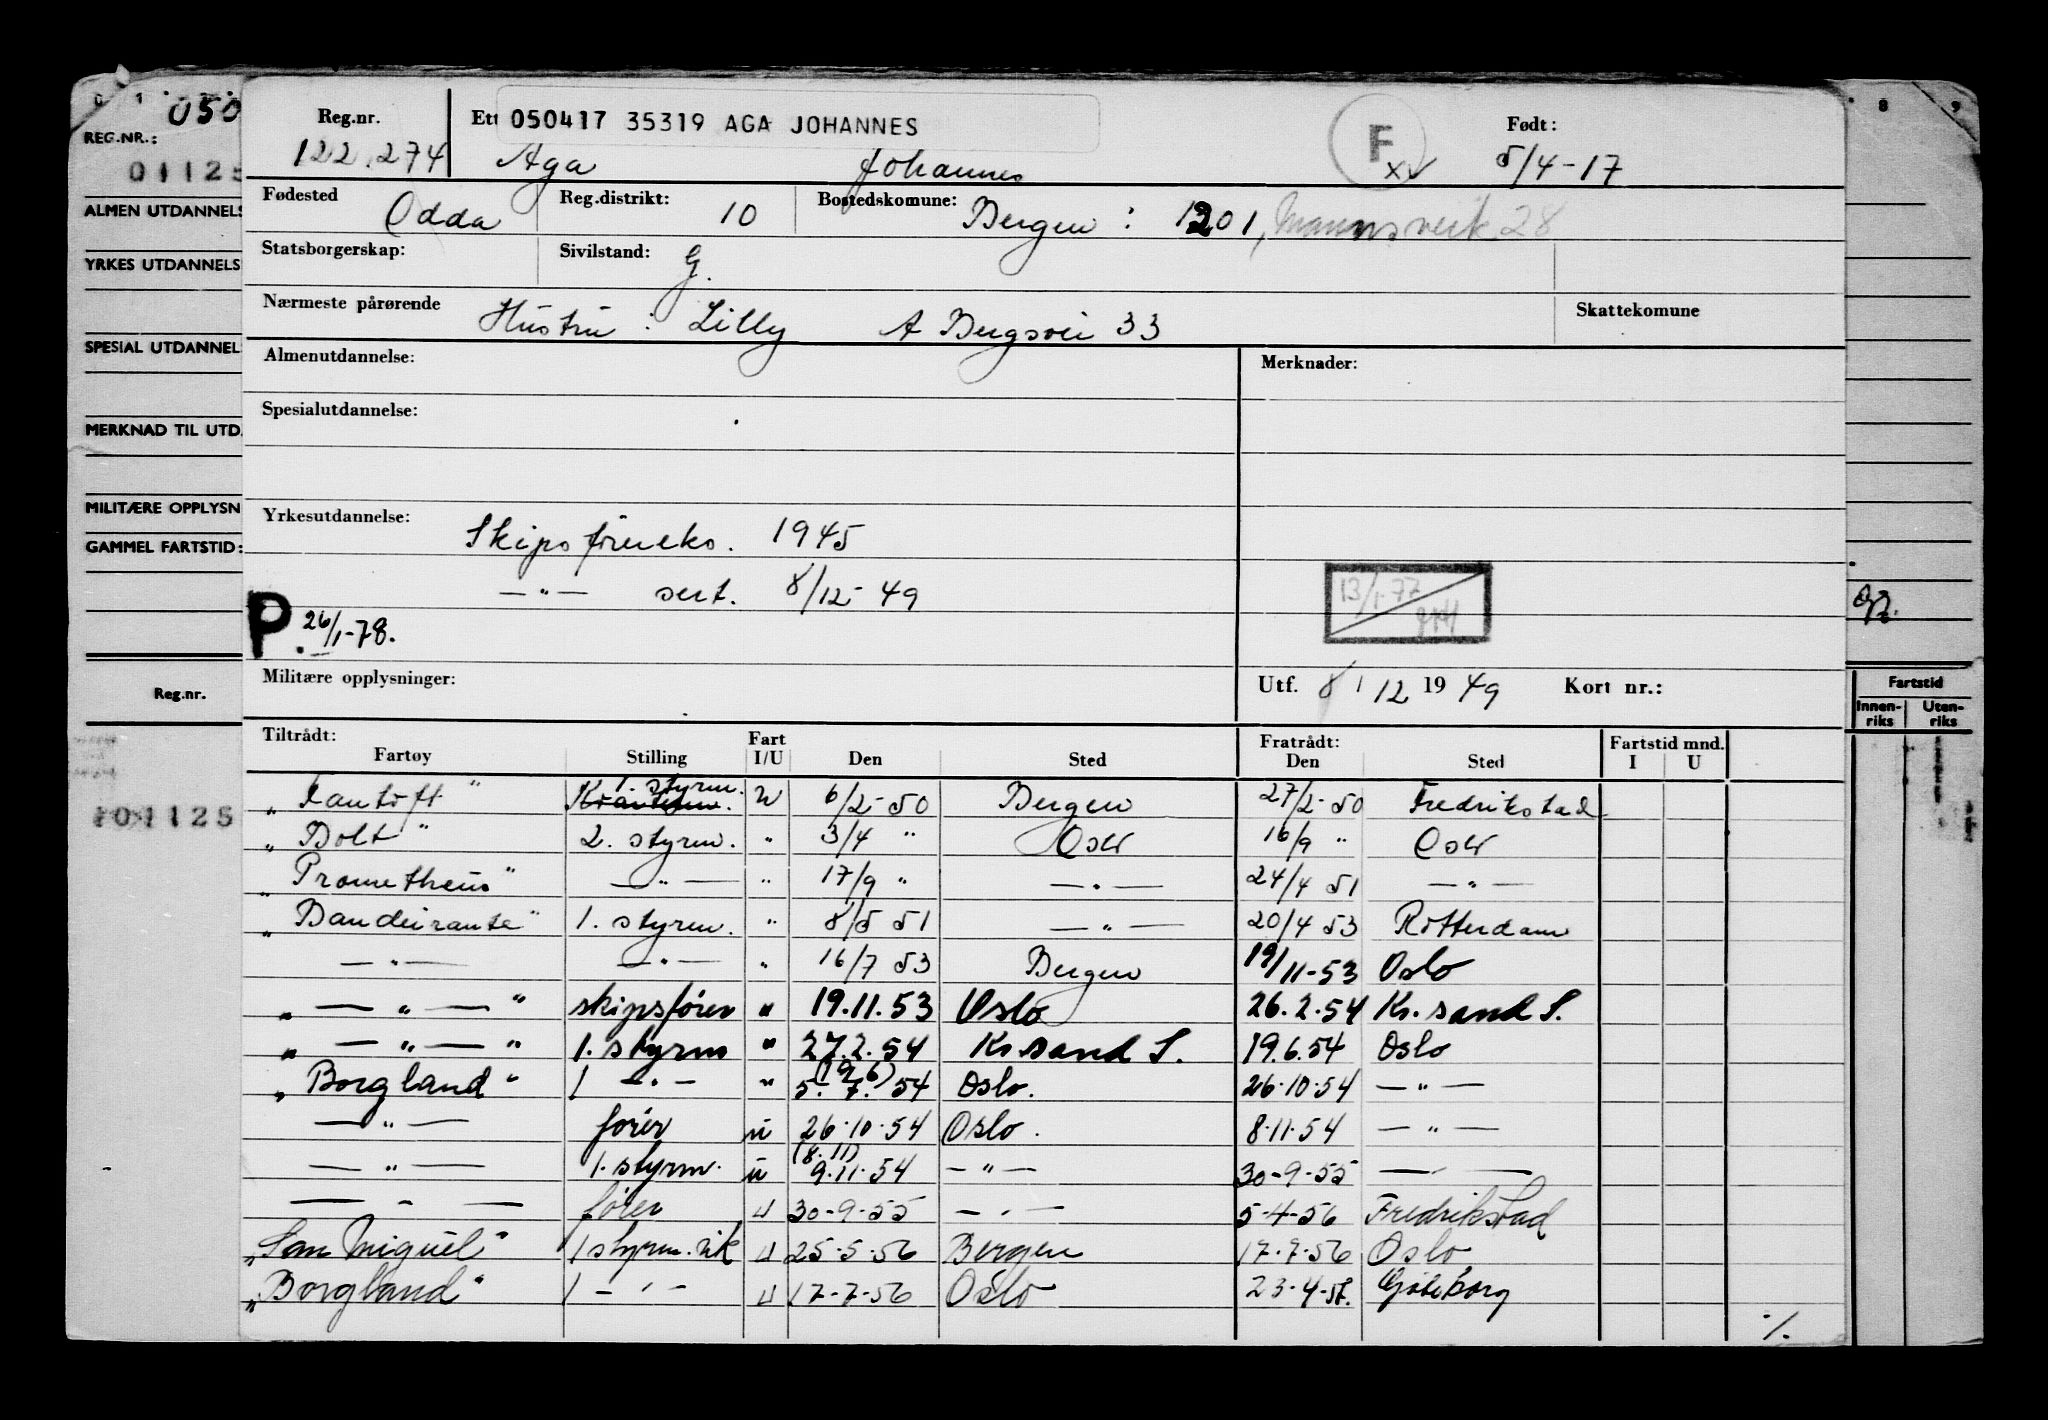 0 1 8 9
050
REG.NR.:
01125
ALMEN UTDANNELS
YRKES UTDANNELS
SPESIAL UTDANNEL
MERKNAD TIL UTD.
MILITÆRE OPPLYSN
GAMMEL FARTSTID:
Reg.nr.
101125
Fartstid
Innen-riks Uten-riks
Reg.nr. Ett 050417 35319 AGA JOHANNES F Født:
122.274 Aga Johannes xv 5/4-17
Fødested Odda Reg.distrikt: 10 Bostedskomune: Bergen : 1201, Mannsverk 28
Statsborgerskap: Sivilstand: G.
Nærmeste pårørende Hustru : Lilly A Bergsvei 33 Skattekomune
Almenutdannelse: Merknader:
Spesialutdannelse:
Yrkesutdannelse: Skipsførereks. 1945
— " — sert. 8/12-49 13/1-77
P. 26/1-78.
Militære opplysninger: Utf. 8 / 12 1949 Kort nr.:
Tiltrådt: Fratrådt: Fartstid mnd.
Fartøy Stilling Fart I/U Den Sted Den Sted I U
1. styrm.
„ Fantoft " U 6/2-50 Bergen 27/2-50 Fredrikstad
„ Bolt " 2. styrm. " 3/4 " Oslo 16/9 " Oslo
„ Prometheus " — " — " 17/9 " — " — 24/4 51 — " —
„ Bandeirante " 1. styrm. " 8/5 51 — " — 20/4 53 Rotterdam
— " — — " — " 16/7 53 Bergen 19/11-53 Oslo
„ — " — " skipsfører " 19.11.53 Oslo 26.2.54 Kr.sand S.
„ — " — " 1. styrm " 27.2.54 Kr.sand S. 19.6.54 Oslo
(19/6)
„ Borgland " 1 — " — " 5.7.54 Oslo. 26.10.54 — " —
— " — fører u 26.10.54 Oslo. 8.11.54 — " —
(8.11)
— " — 1. styrm. u 9.11.54 — " — 30-9-55 — " —
— " — fører U 30-9-55 — " — 5-4-56 Fredrikstad
„ San Miguel " 1 styrm. vik U 25-5-56 Bergen 17-7-56 Oslo
„ Borgland " 1 — " — U 17-7-56 Oslo 23-4-57. Göteborg
·/.